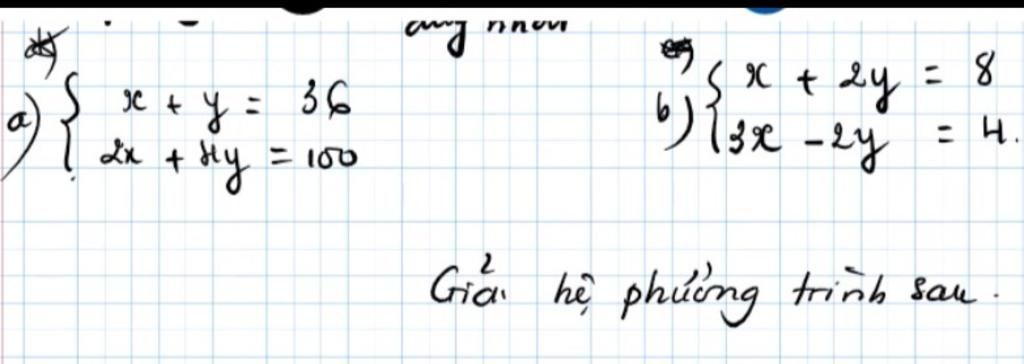 a) { x + y = 36
2x + 4y = 100
b) { x + 2y = 8
3x - 2y = 4.
Giải hệ phương trình sau.